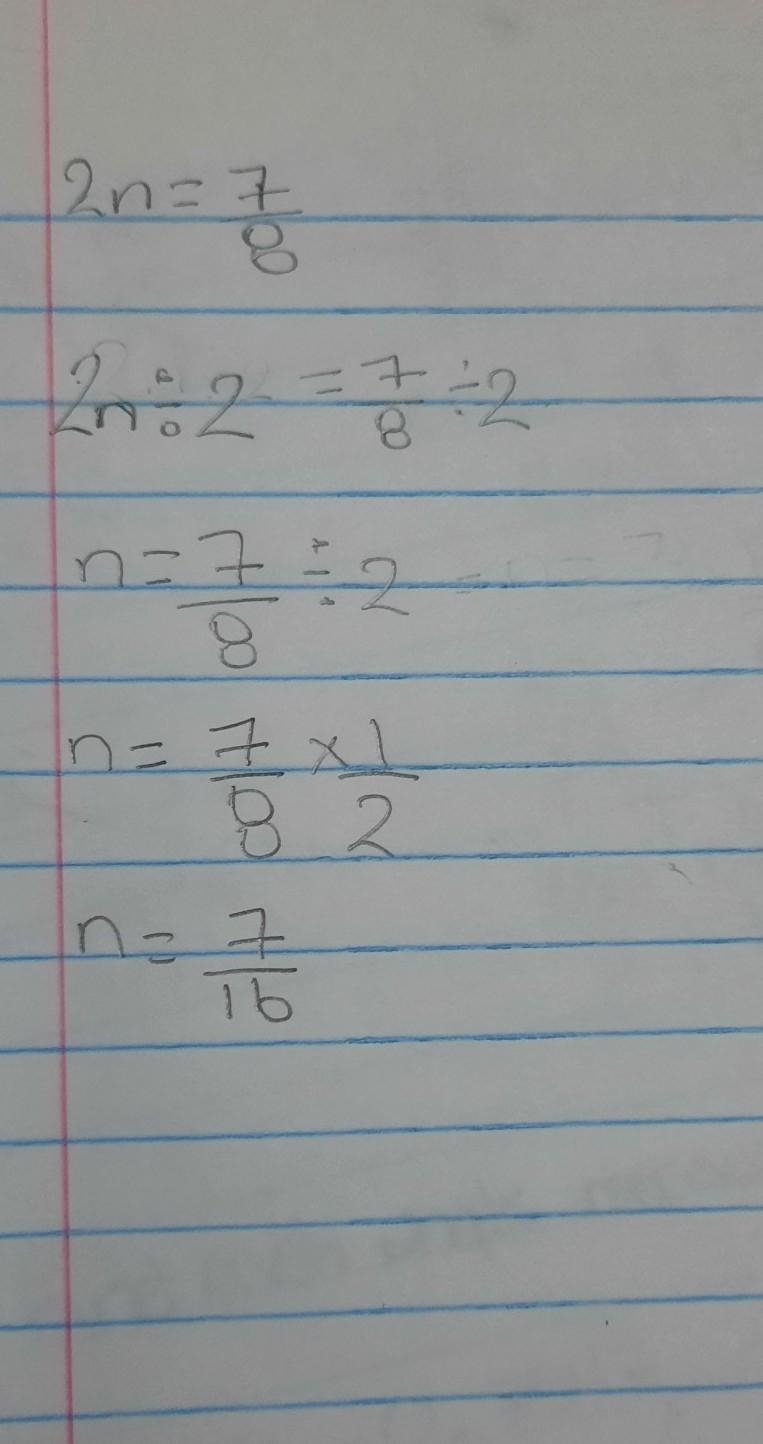 2n = 7/8
2n ÷ 2 = 7/8 ÷ 2
n = 7/8 ÷ 2
n = 7/8 × 1/2
n = 7/16